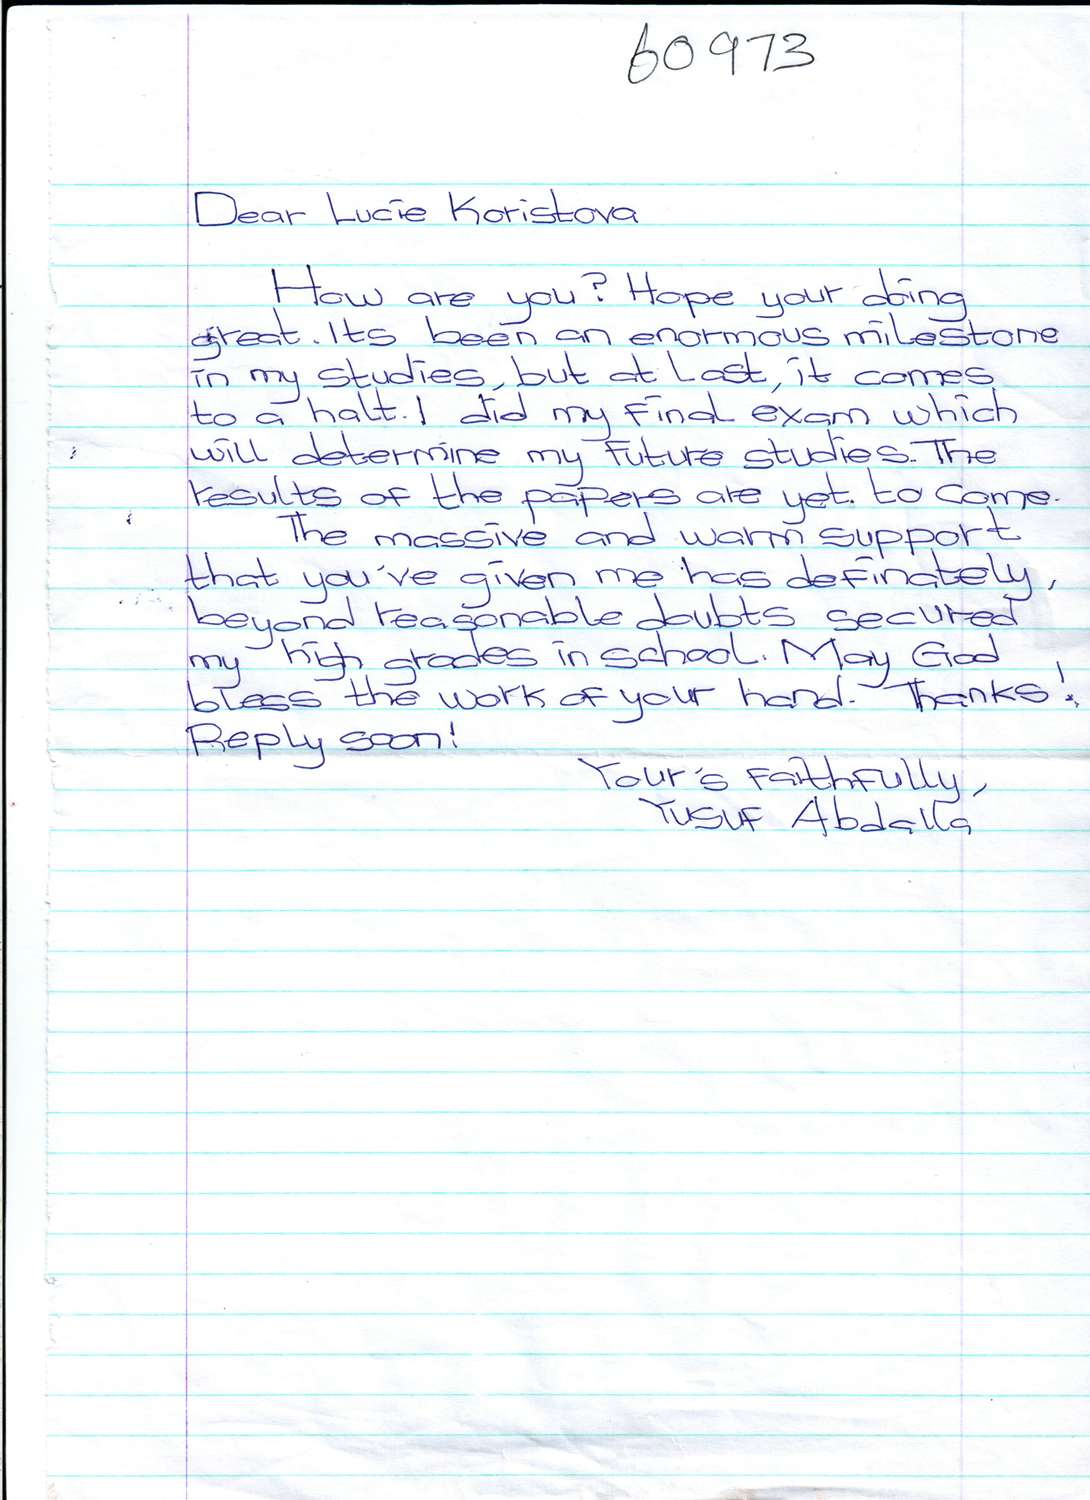 60973
Dear Lucie Koristova
How are you? Hope your doing
great. Its been an enormous milestone
in my studies, but at last, it comes
to a halt. I did my final exam which
will determine my future studies. The
results of the papers are yet. to come.
The massive and warm support
that you've given me has definately,
beyond reasonable doubts secured
my high grades in school. May God
bless the work of your hand. Thanks!
Reply soon!
Your's faithfully,
Yusuf Abdalla